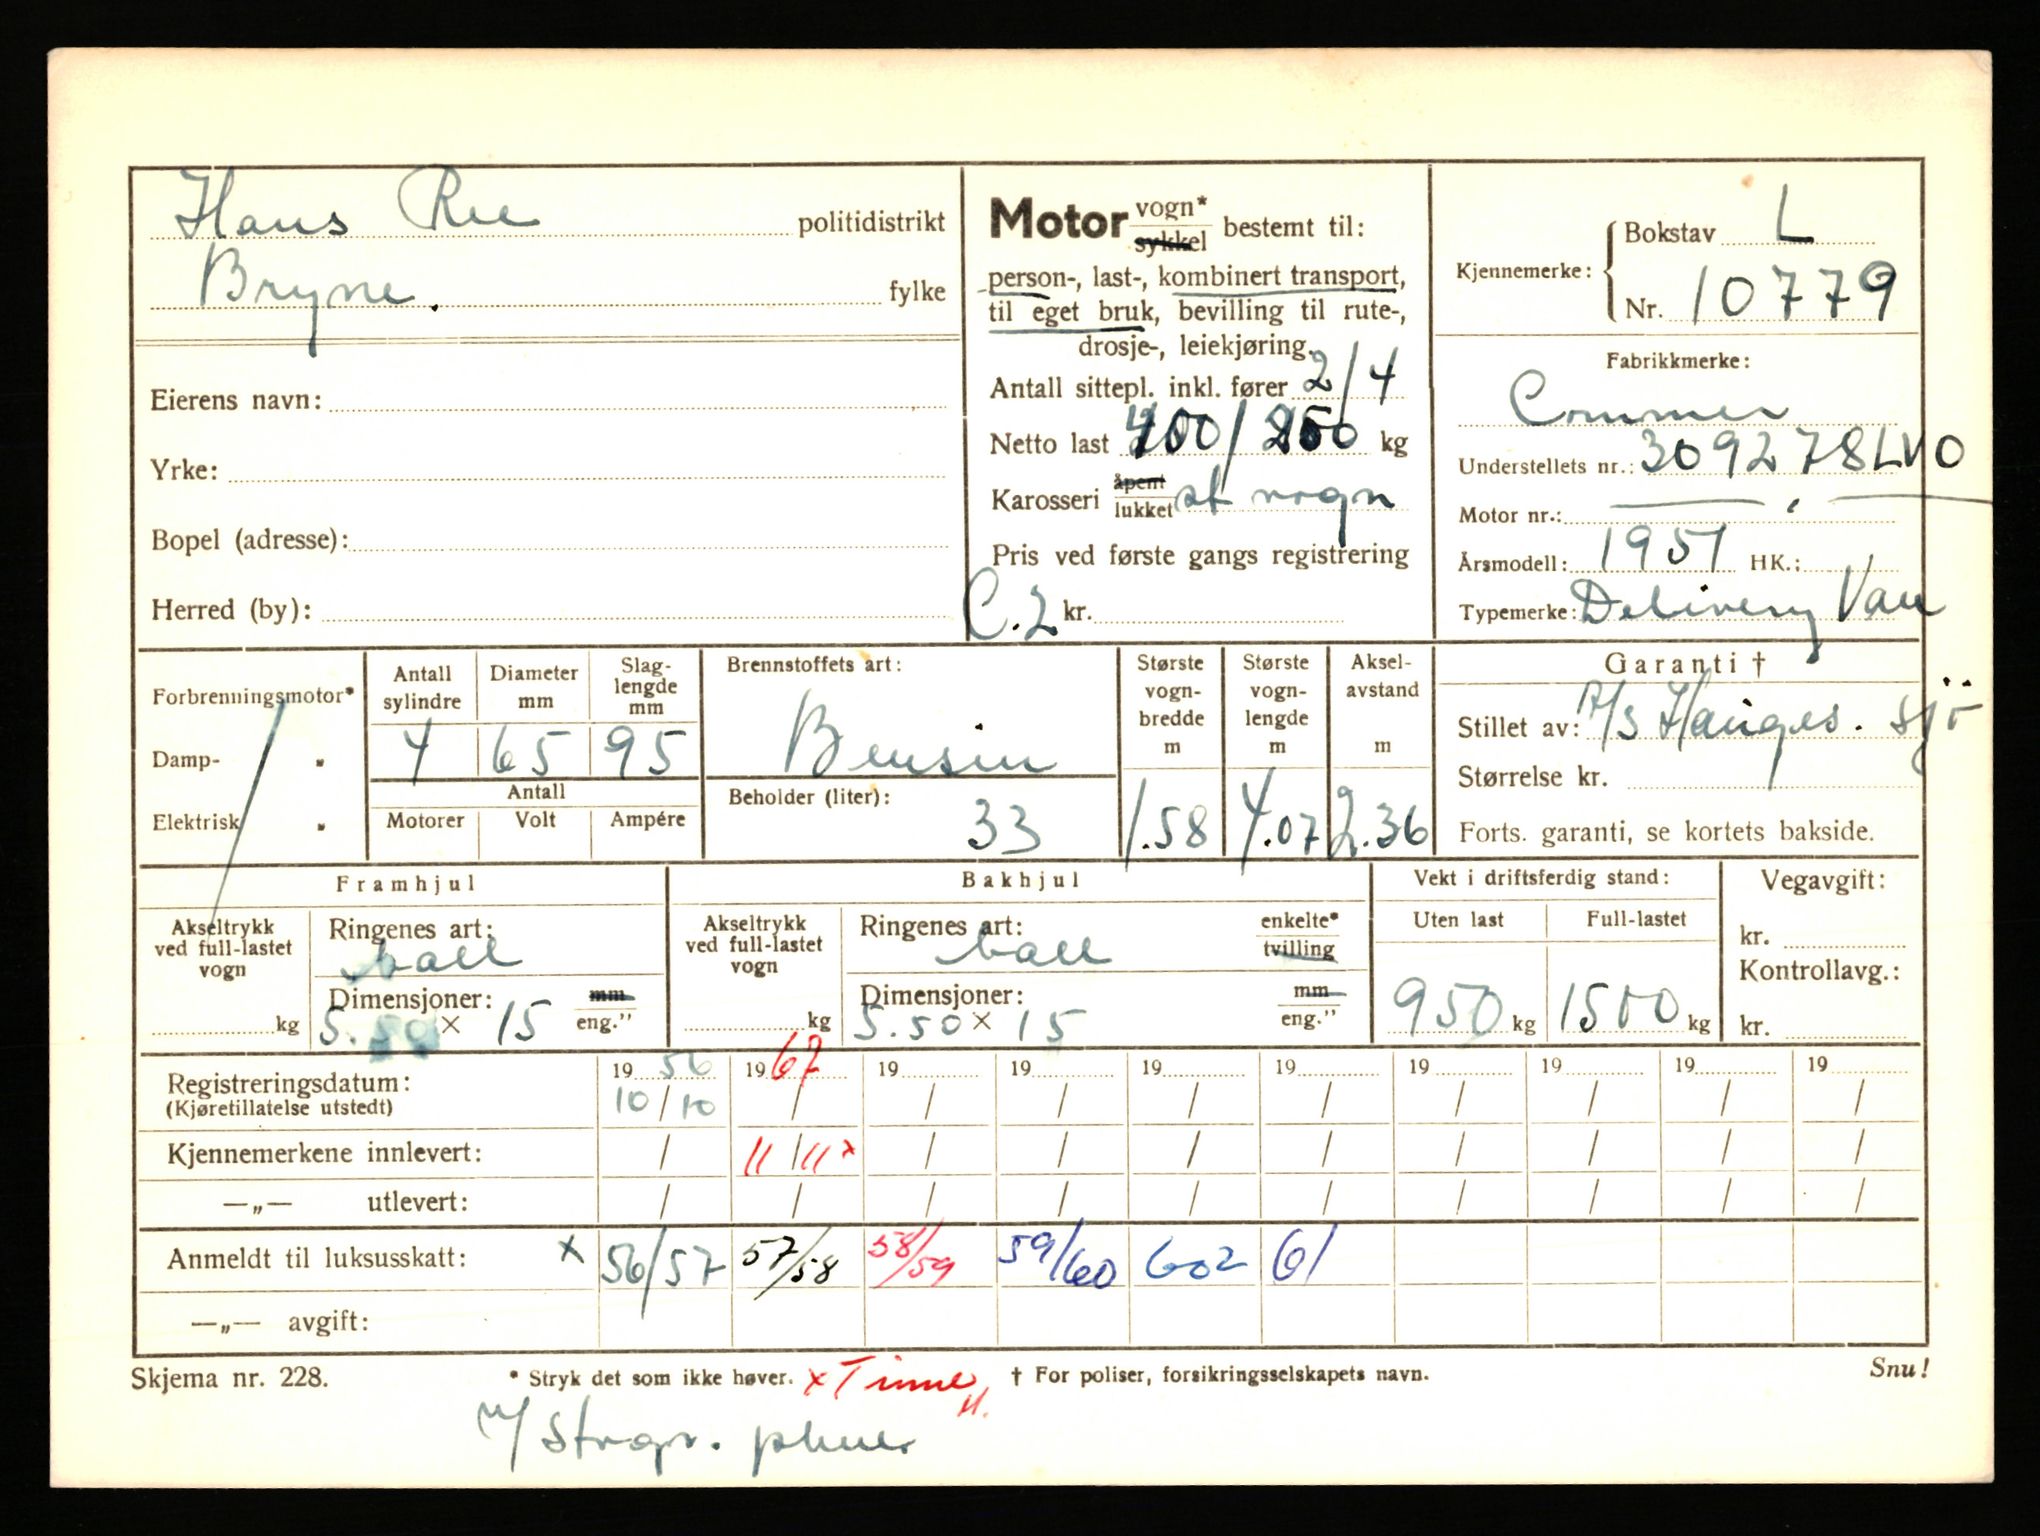 Hans Ree politidistrikt
Bryne. fylke
Eierens navn:
Yrke:
Bopel (adresse):
Herred (by):
Motor vogn* sykkel bestemt til:
person-, last-, kombinert transport,
til eget bruk, bevilling til rute-,
drosje-, leiekjøring.
Antall sittepl. inkl. fører 2/4
Netto last 400/250 kg
Karosseri åpent lukket st vogn
Pris ved første gangs registrering
C.2 kr.
Kjennemerke: Bokstav L
Nr. 10779
Fabrikkmerke:
Commer
Understellets nr.: 309278LVO
Motor nr.:
Årsmodell: 1951 HK.:
Typemerke: Delivery Van
Forbrenningsmotor*
Damp- "
Elektrisk "
Antall sylindre Diameter mm Slaglengde mm
4 65 95
Antall
Motorer Volt Ampére
Brennstoffets art:
Bensin
Beholder (liter):
33
Største vognbredde m Største vognlengde m Akselavstand m
1.58 4.07 2.36
Garanti †
Stillet av: A/S Hauges. sjö
Størrelse kr.
Forts. garanti, se kortets bakside.
Framhjul
Akseltrykk ved full-lastet vogn
kg
Ringenes art:
ball
Dimensjoner: mm
5.50 × 15 eng."
Bakhjul
Akseltrykk ved full-lastet vogn
kg
Ringenes art: enkelte*
ball tvilling
Dimensjoner: mm
5.50 × 15 eng."
Vekt i driftsferdig stand:
Uten last Full-lastet
950 kg 1500 kg
Vegavgift:
kr.
Kontrollavg.:
kr.
Registreringsdatum: 19 56 19 67 19 19 19 19 19 19 19 19
(Kjøretillatelse utstedt) 10/10 / / / / / / / / /
Kjennemerkene innlevert: / 11/11 x / / / / / / / /
—„— utlevert: / / / / / / / / / /
Anmeldt til luksusskatt: x 56/57 57/58 58/59 59/60 602 61
—„— avgift:
Skjema nr. 228. * Stryk det som ikke høver. x Time † For poliser, forsikringsselskapets navn. Snu!